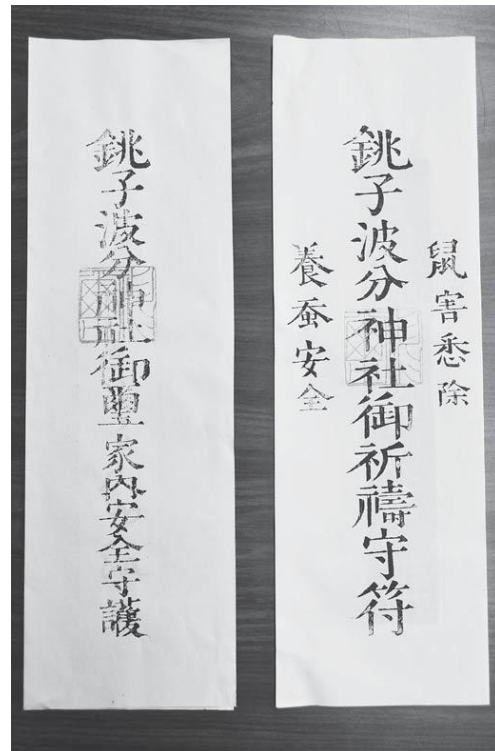 鼠害悉除
銚子波分神社御祈禱守符
養蚕安全
銚子波分神社御璽家内安全守護